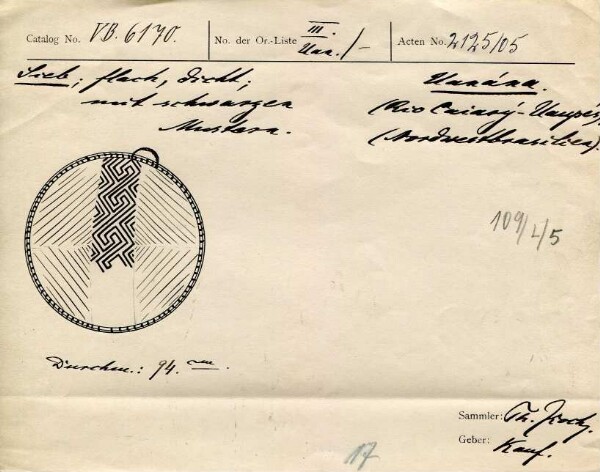 Catalog No. VB. 6170. No. der Or.-Liste III Uan./- Acten No. 2125/05
Sieb; flach, dicht; Uanána.
mit schwarzen (Rio Caiarý-Uaupés)
Mustern. (Nordwestbrasilien).
109/L/5
Durchm.: 94. cm.
Sammler: Th. Koch,
Geber: Kauf.
17